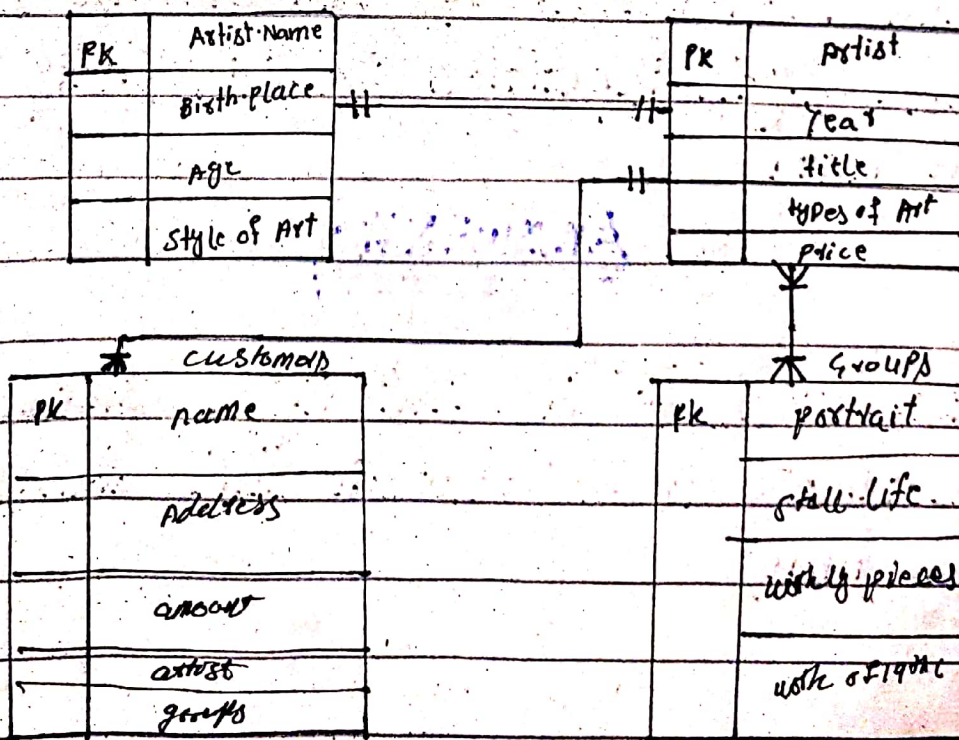 PK Artist Name
Birth place
Age
Style of Art
PK Artist
Year
title
types of Art
price
customers
PK name
Address
amount
artist
groups
Groups
PK portrait
still life
pieces
work of